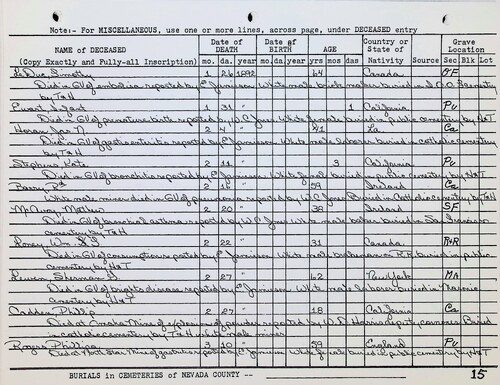 Note:- For MISCELLANEOUS, use one or more lines, across page, under DECEASED entry
NAME of DECEASED
(Copy Exactly and Fully-all Inscription)
Date of DEATH
mo. da. year
Date of BIRTH
mo. da. year
AGE
yrs mos das
Country or State of Nativity
Source
Grave Location
Sec Blk Lot
LeDuc, Timothy 1 26 1892 64 Canada OF
Died in GV of embolica reported by Jamison White male brick maker buried in I.O.O.F. cemetery
by T&H
Infant 1 31 " 1 California Pu
Died in GV of reported by W.C. Jones White female buried in public cemetery by H&T
Horan, Jas N. 2 4 " 41 La. Ca
Died in GV of gastroenteritis reported by Jamison White male laborer buried in catholic cemetery
by T&H
Stephens, Kate 2 11 " 3 California Pu
Died in GV of bronchitis reported by Jamison White female buried in public cemetery by H&T
Barry, 2 15 " 59 Ireland Ca
White male miner died in GV of pneumonia reported by W.C. Jones Buried in Catholic cemetery by T&H
Mathew 2 20 " 39 Ireland SF
Died in GV of bronchial asthma reported by W.C. Jones White male baker buried in San Francisco
cemetery by T&H
Wm 2 22 " 31 Canada
Died in GV of consumption reported by Jamison White male brakeman on R.R. buried in public
cemetery by H&T
Sherman 2 27 " 62 New York MA
Died in GV of brights disease reported by Jamison White male laborer buried in Masonic
cemetery by H&T
Cadden Phillip 2 27 " 18 California Ca
Died at Omaha Mine of explosion of powder reported by coroner Buried
in catholic cemetery by T&H white male miner
Rogers Phillipa 3 10 " 59 England Pu
Died at North Star Mine of gastritis reported by Jamison White female buried in public cemetery by H&T
BURIALS in CEMETERIES of NEVADA COUNTY --
15